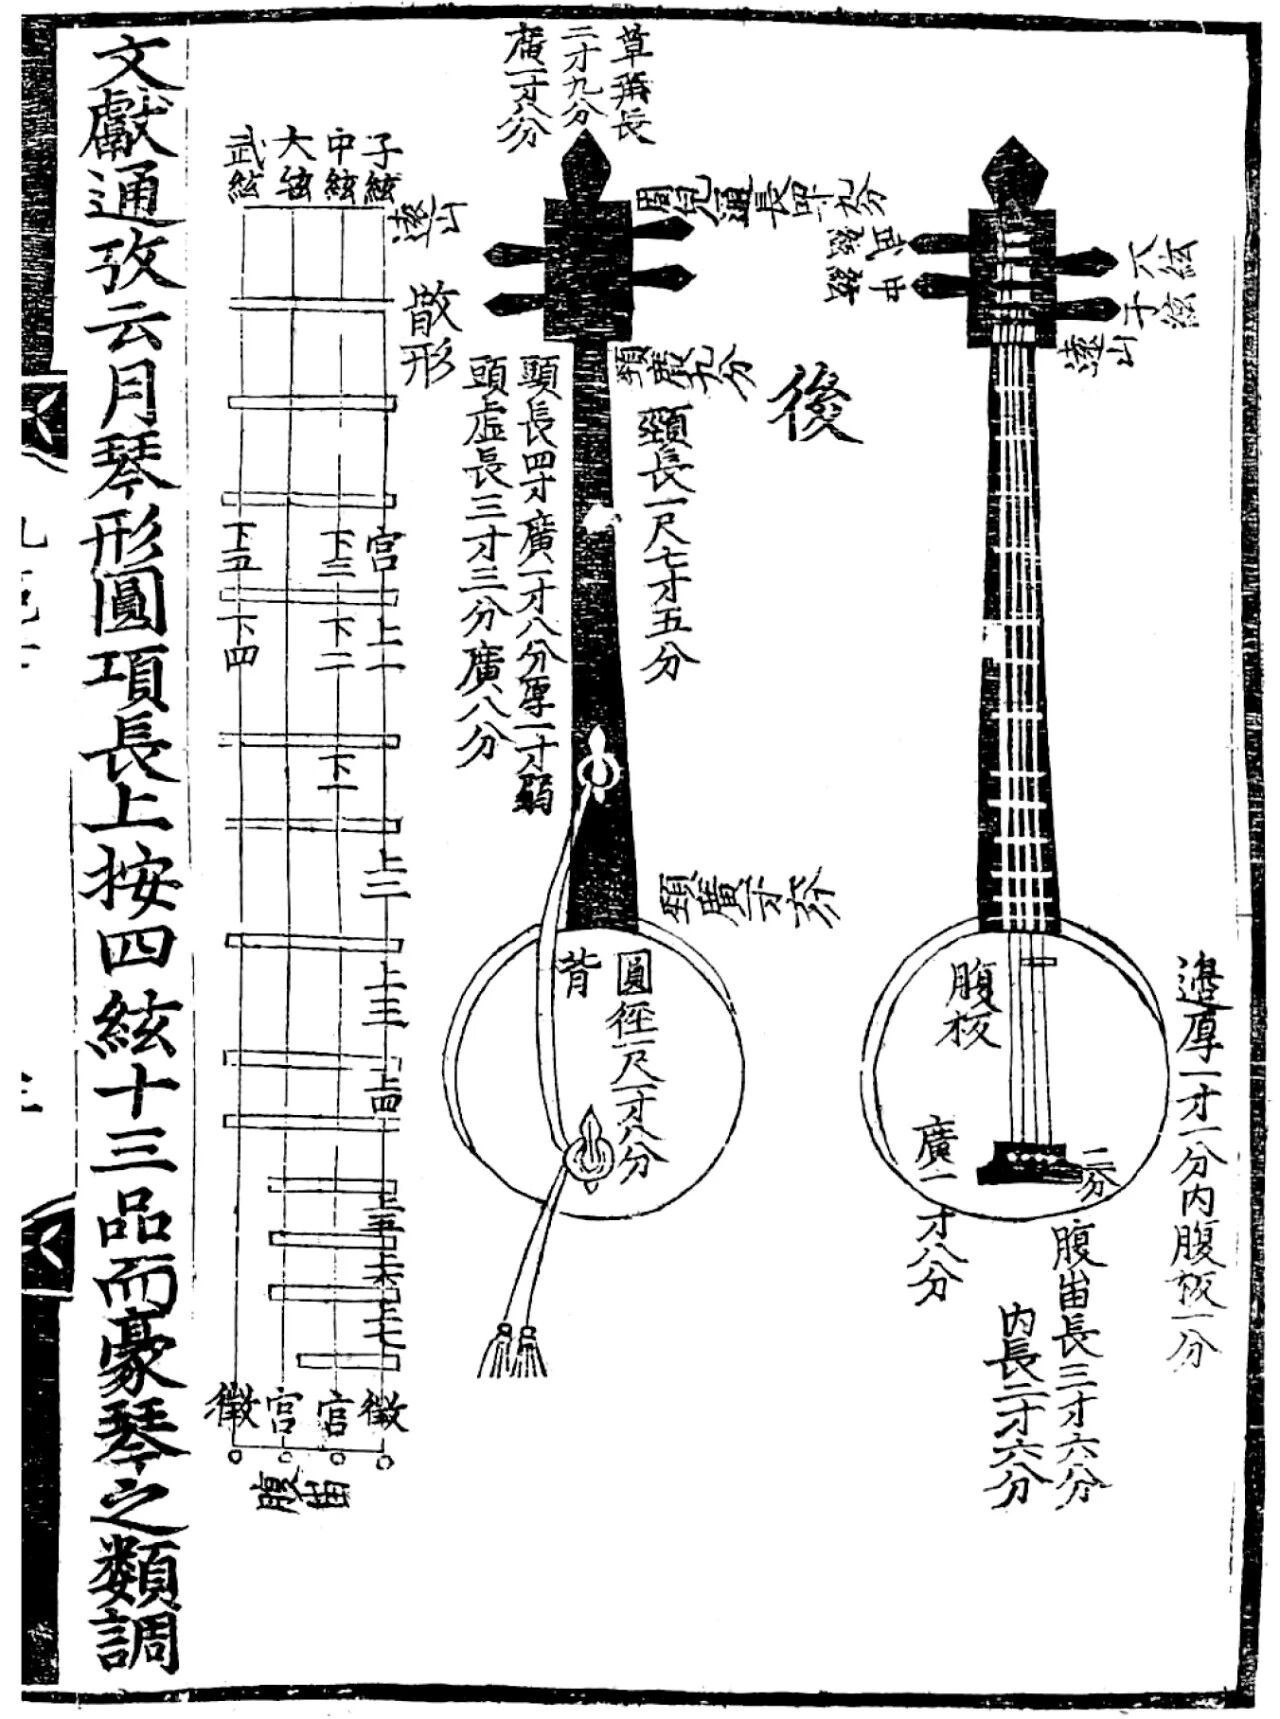 大絃
子絃
遠山
腹板
邉厚一寸一分内腹板一分
二分
廣一寸八分
腹
長三寸六分
内長二寸六分
後
二寸九分
廣一寸八分
頸長一尺七寸五分
頭長四寸廣一寸八分厚一寸弱
頭虛長三寸三分廣八分
背
圓徑一尺一寸八分
子絃
中絃
大絃
武絃
遠山
散形
宮
下三
下五
上一
下二
下四
下一
上二
上三
上四
上五
上六
上七
徵
宮
宮
徵
腹
文獻通攷云月琴形圓項長上按四絃十三品而豪琴之類調